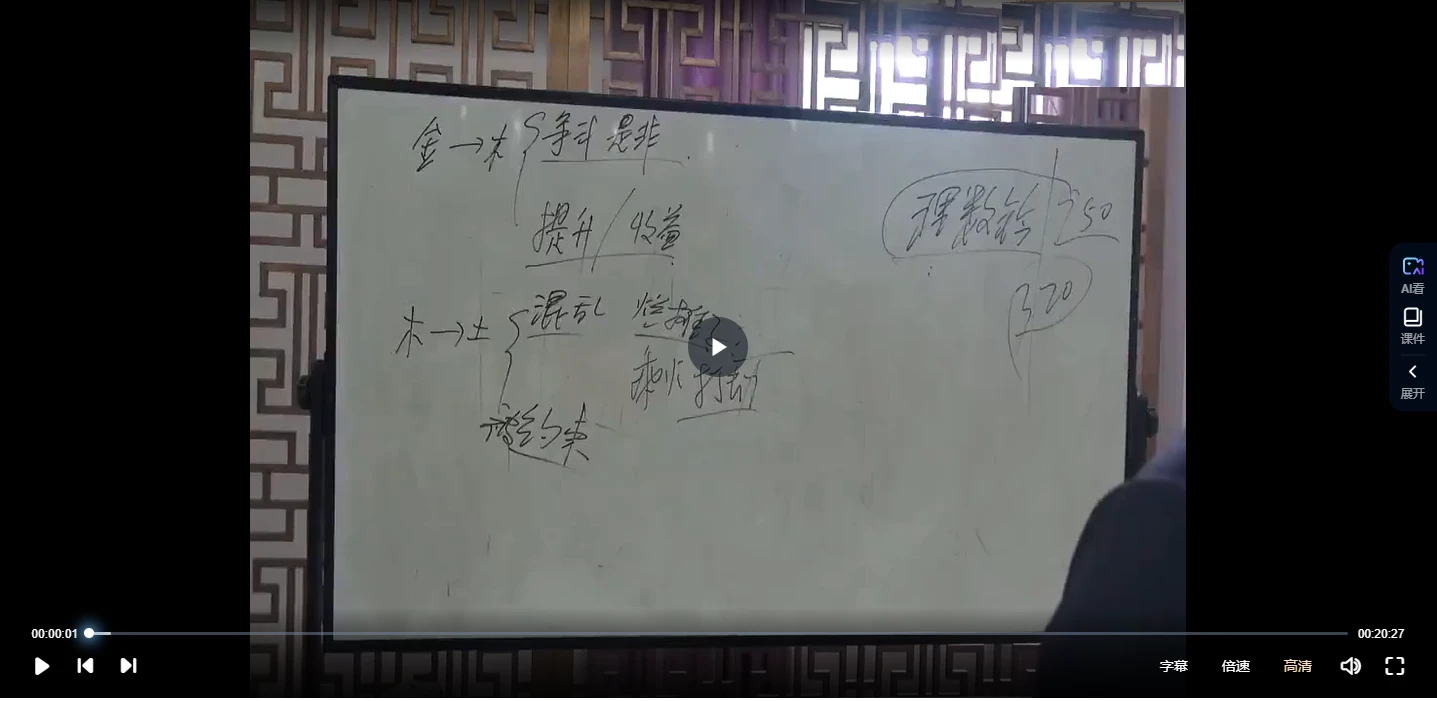 金→木 { 争斗 是非
提升 / 收益
木→土 { 混乱 烂摊子
乘火打劫
被约束
理数诠 250
320
AI看
课件
展开
00:00:01
00:20:27
字幕
倍速
高清